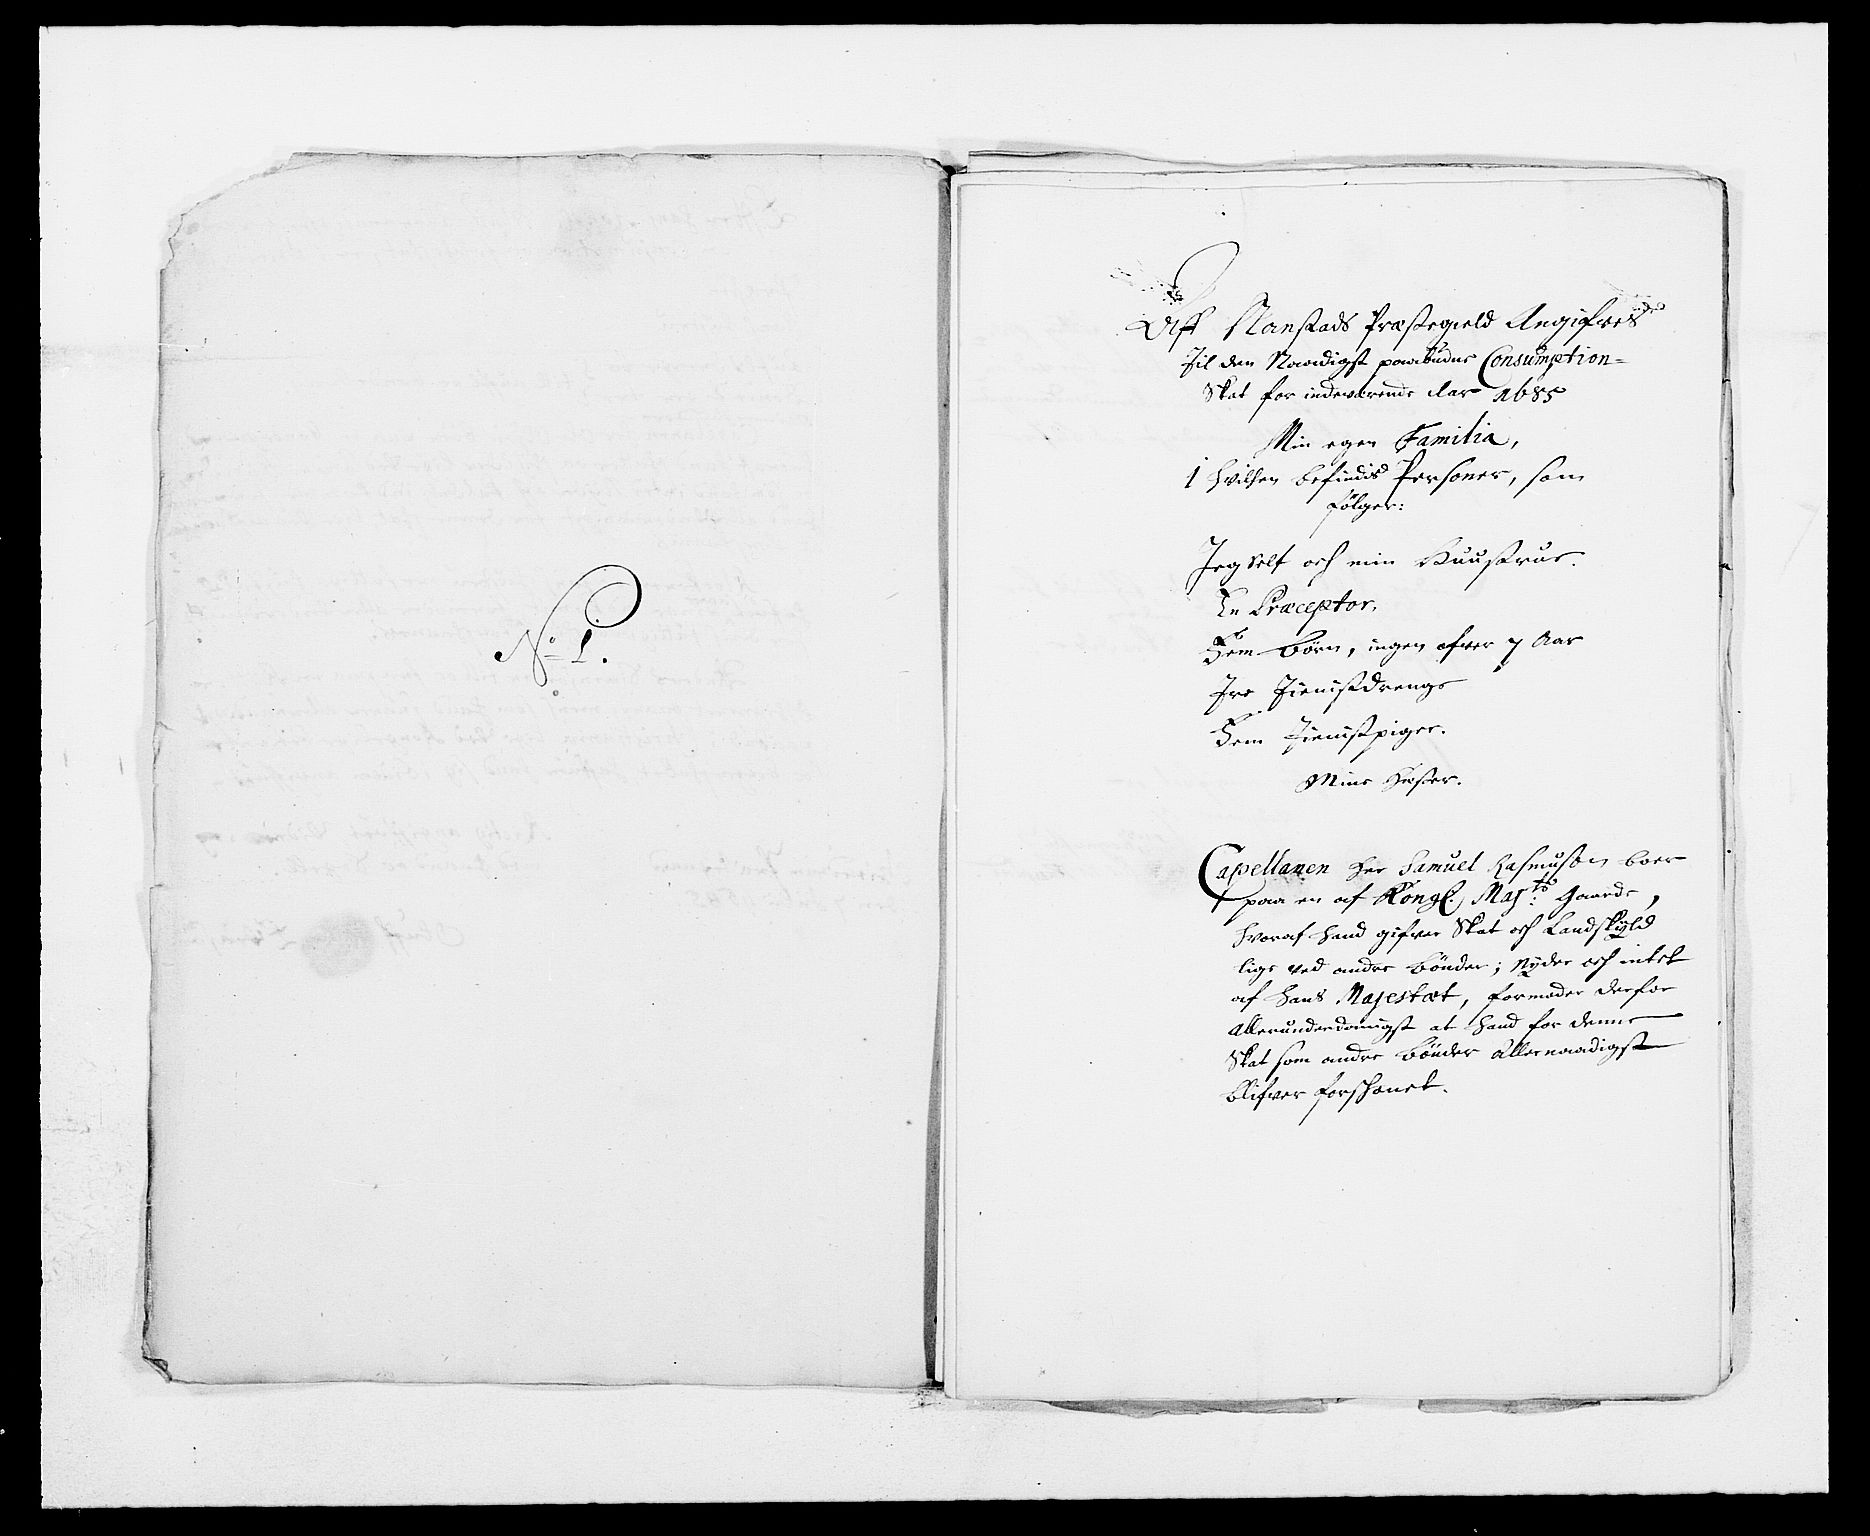 No 1.
Aff Nanstads Præstegield Angifves
Til den Naadigst paabudne Consumption=
Skat for indeværende Aar 1685
Min egen Familia,
I hvilken befindis Personer, som
følger:
Jeg self och min Huustrue.
En Præceptor.
Fem Børn, ingen ofver 7 Aar
Tre Tienistdrenge
Fem Tienistpiger.
Mine Huster.
Capellanen Her Samuel Rasmuson boer
paa en af Kongl. Maj:ts Gaarde,
hvoraf hand gifver Skat och Landskyld
lige ved andre bønder; Nyder och intet
af hans Majestæt, formoder derfor
allerunderdanigst at hand for denne
Skat som andre bønder allernaadigst
blifver forskonet.